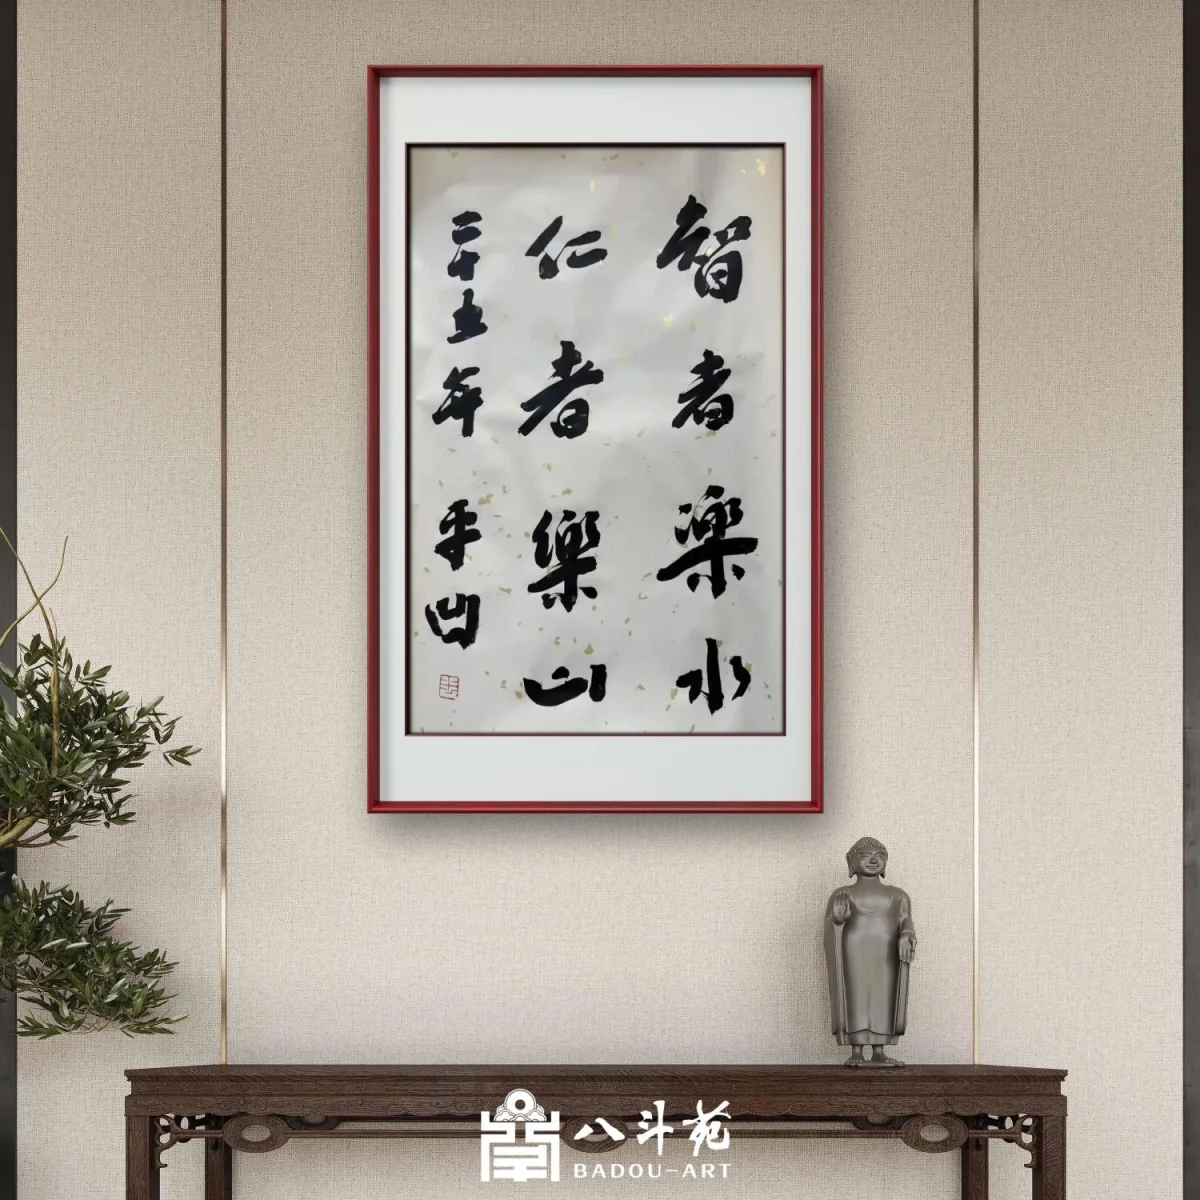 智者樂水
仁者樂山
二十五年 平凹
八斗苑
BADOU-ART